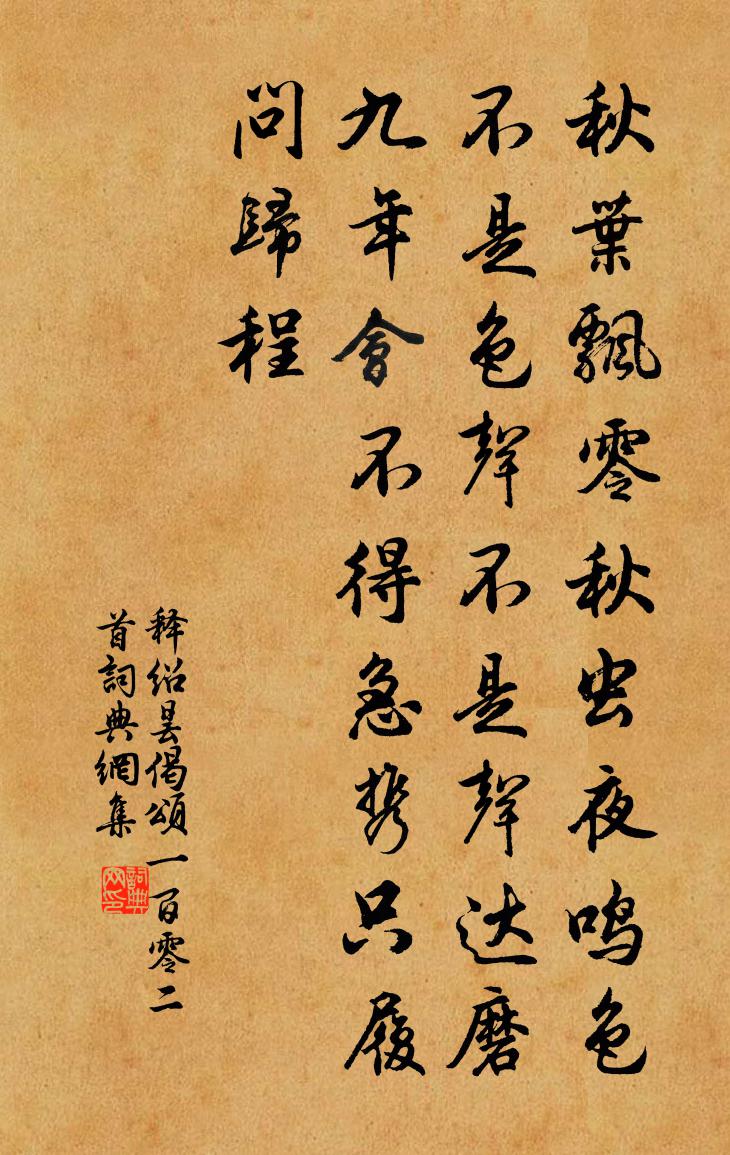 秋葉飄零秋虫夜鳴色
不是色聲不是聲达磨
九年會不得急携只履
問歸程
释绍昙偈頌一百零二
首詞典網集
詞典网印